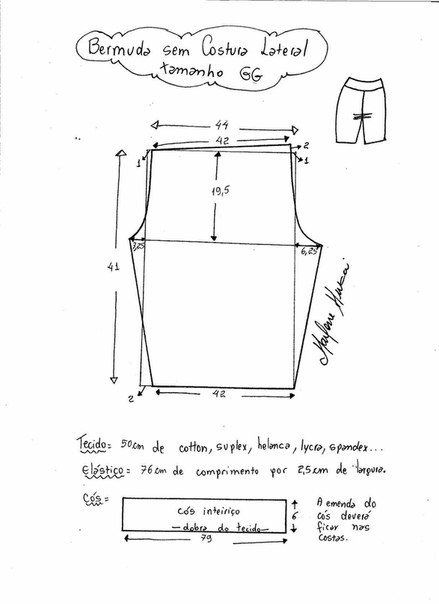 Bermuda sem Costura Lateral
tamanho GG
44
42
2
1
1
19,5
3,25
6,25
41
Marlene Mukai
2
42
Tecido= 50cm de cotton, suplex, helanca, lycra, spandex...
Elástico= 76cm de comprimento por 2,5cm de largura.
Cós=
cós inteiriço
dobra do tecido
79
6
A emenda do
cós deverá
ficar nas
costas.